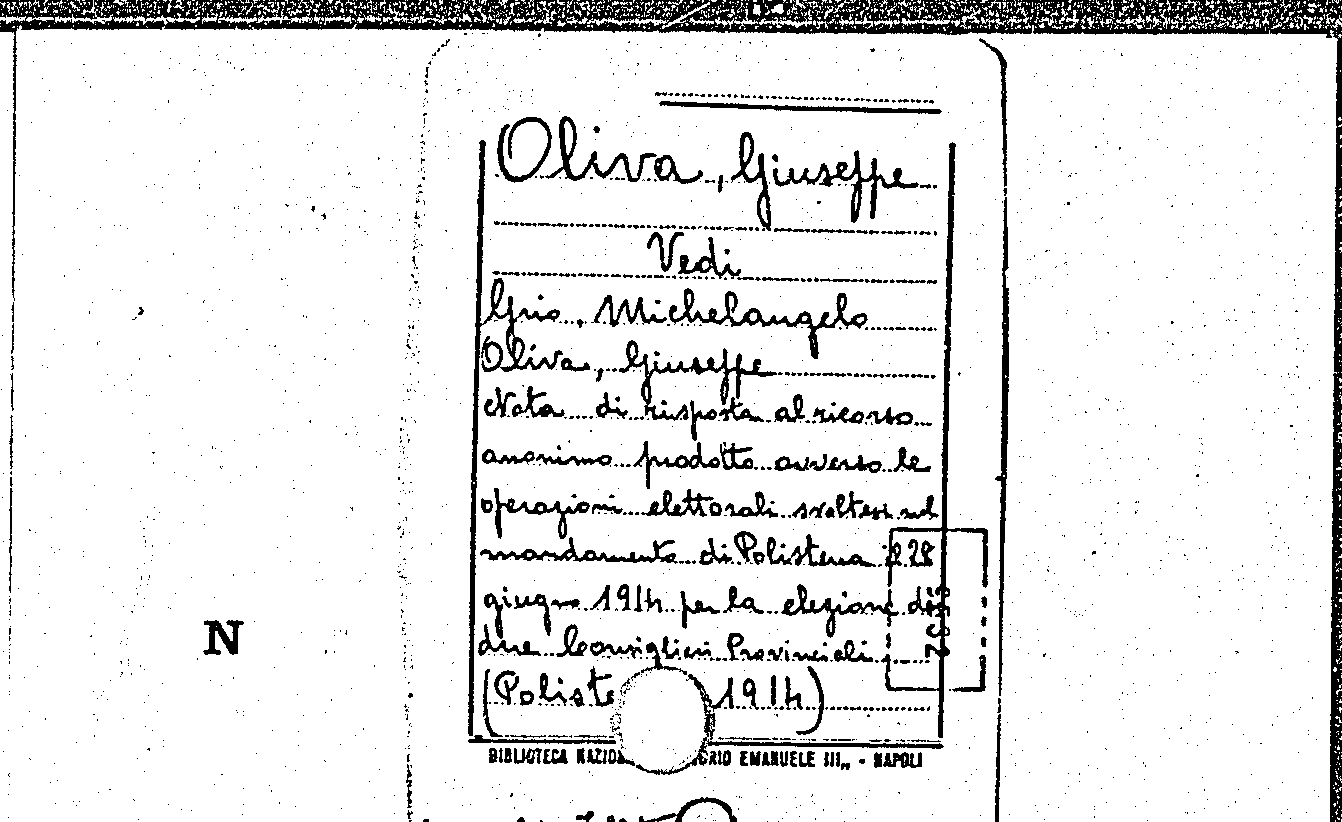 Oliva, Giuseppe
Vedi
Grio, Michelangelo
Oliva, Giuseppe
Nota di risposta al ricorso
anonimo prodotto avverso le
operazioni elettorali svoltesi nel
mandamento di Polistena il 28
giugno 1914 per la elezione di
due Consiglieri Provinciali
(Poliste 1914)
BIBLIOTECA NAZION ORIO EMANUELE III„ - NAPOLI
N